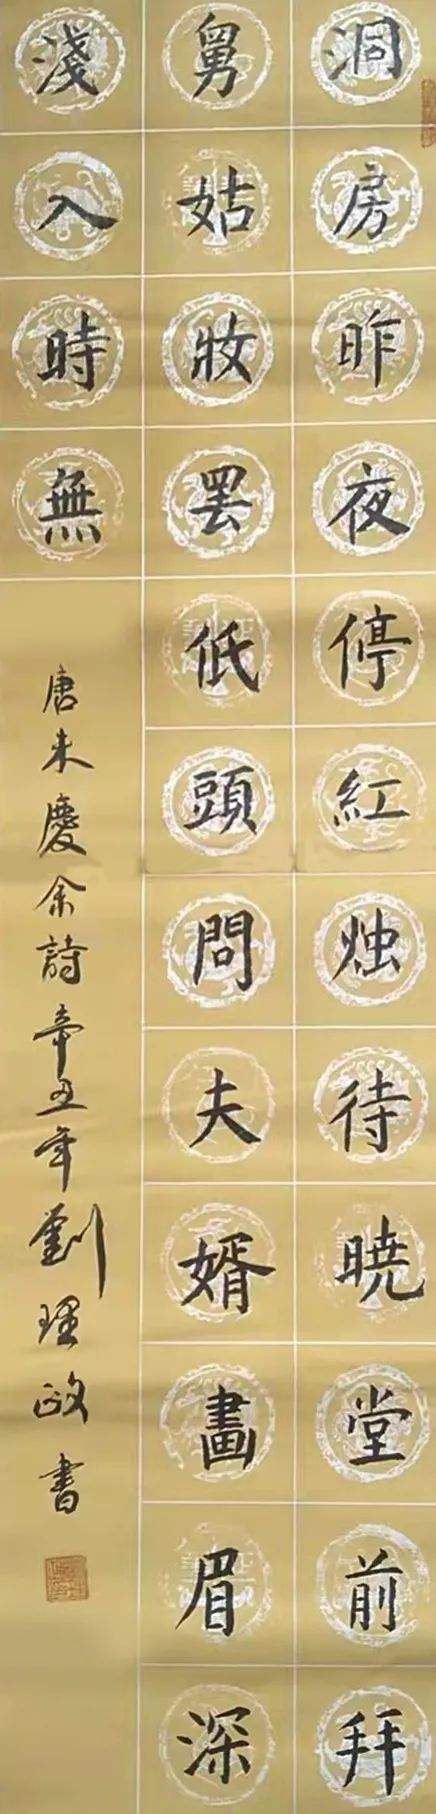 洞房昨夜停紅烛待曉堂前拜
舅姑妝罢低頭問夫婿畫眉深
淺入時無
唐朱慶余詩辛丑年劉理政書